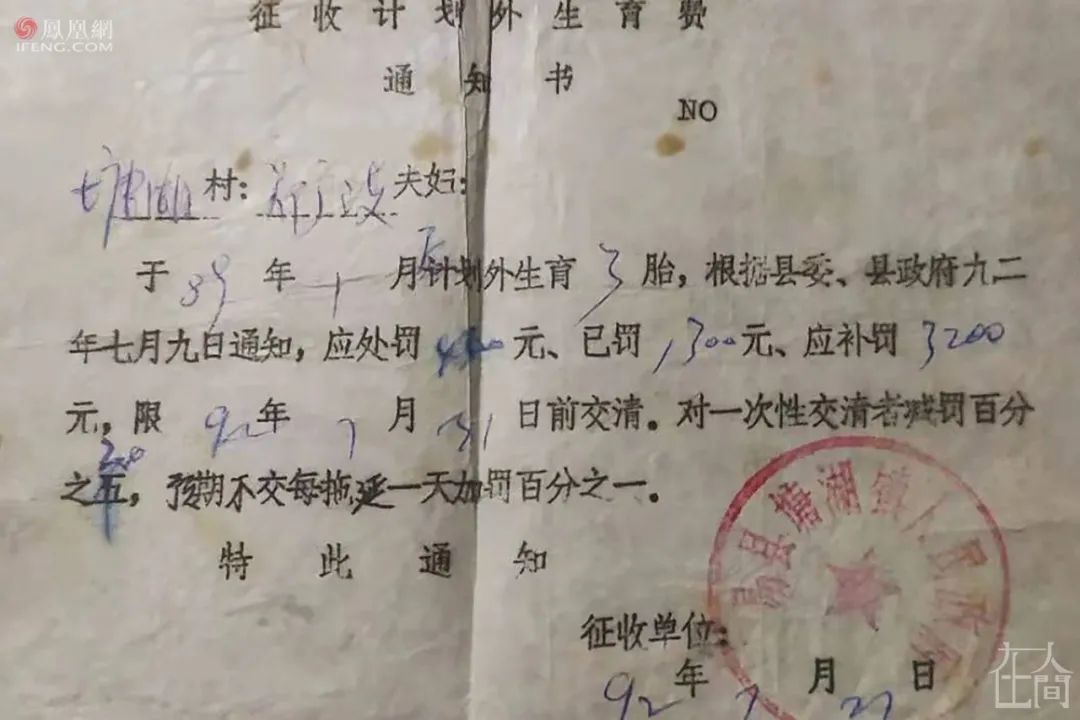 鳳凰網
IFENG.COM
征收计划外生育费
通知书
NO
塘湖村：夫妇：
于89年1月计划外生育3胎，根据县委、县政府九二
年七月九日通知，应处罚元、已罚1300元、应补罚3200
元，限92年7月31日前交清。对一次性交清者减罚百分
之，预期不交每拖延一天加罚百分之一。
特此通知
征收单位：
92年7月27日
易县塘湖镇人民政府
在人间